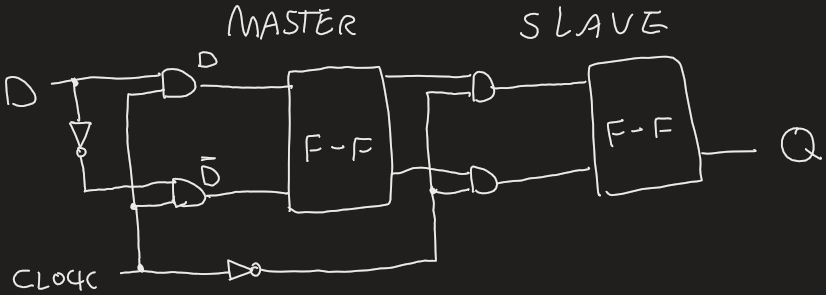 MASTER SLAVE
D
D
D̅
F-F
F-F
Q
CLOCK